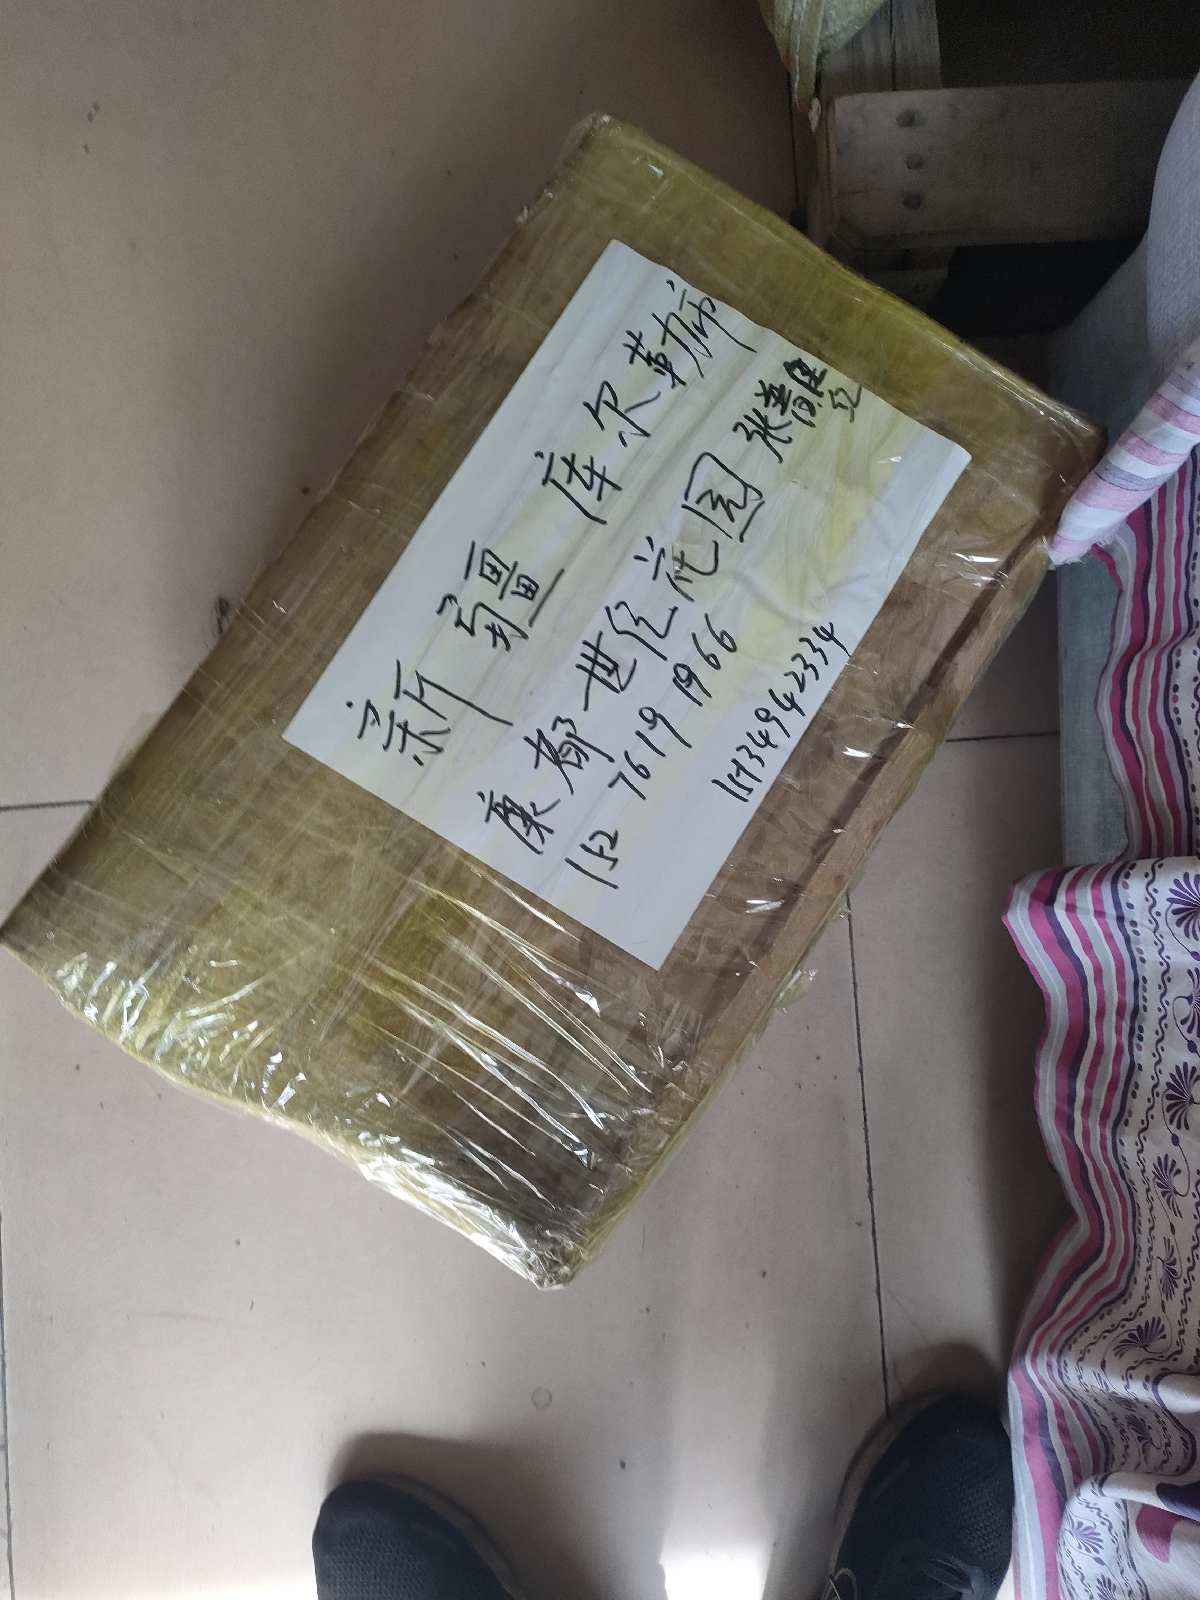 新疆 库尔勒市
康都世纪花园 张
152 7619 1966
15134942334